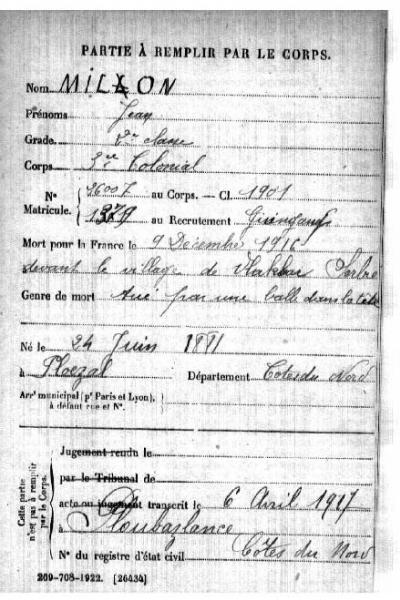 PARTIE À REMPLIR PAR LE CORPS.
Nom MILLON
Prénoms Jean
Grade 2e classe
Corps 3e Colonial
N° 26007 au Corps. — Cl. 1901
Matricule. 1379 au Recrutement Guingamp
Mort pour la France le 9 Décembre 1916
devant le village de
Genre de mort Tué par une balle dans la tête
Né le 24 Juin 1881
à Ploezal Département Côtes du Nord
Arrt municipal (pr Paris et Lyon),
à défaut rue et N°.
Cette partie n'est pas à remplir par le Corps.
Jugement rendu le
par le Tribunal de
acte ou jugement transcrit le 6 Avril 1917
à Ploubazlanec
N° du registre d'état civil Côtes du Nord
269-708-1922. [26434]